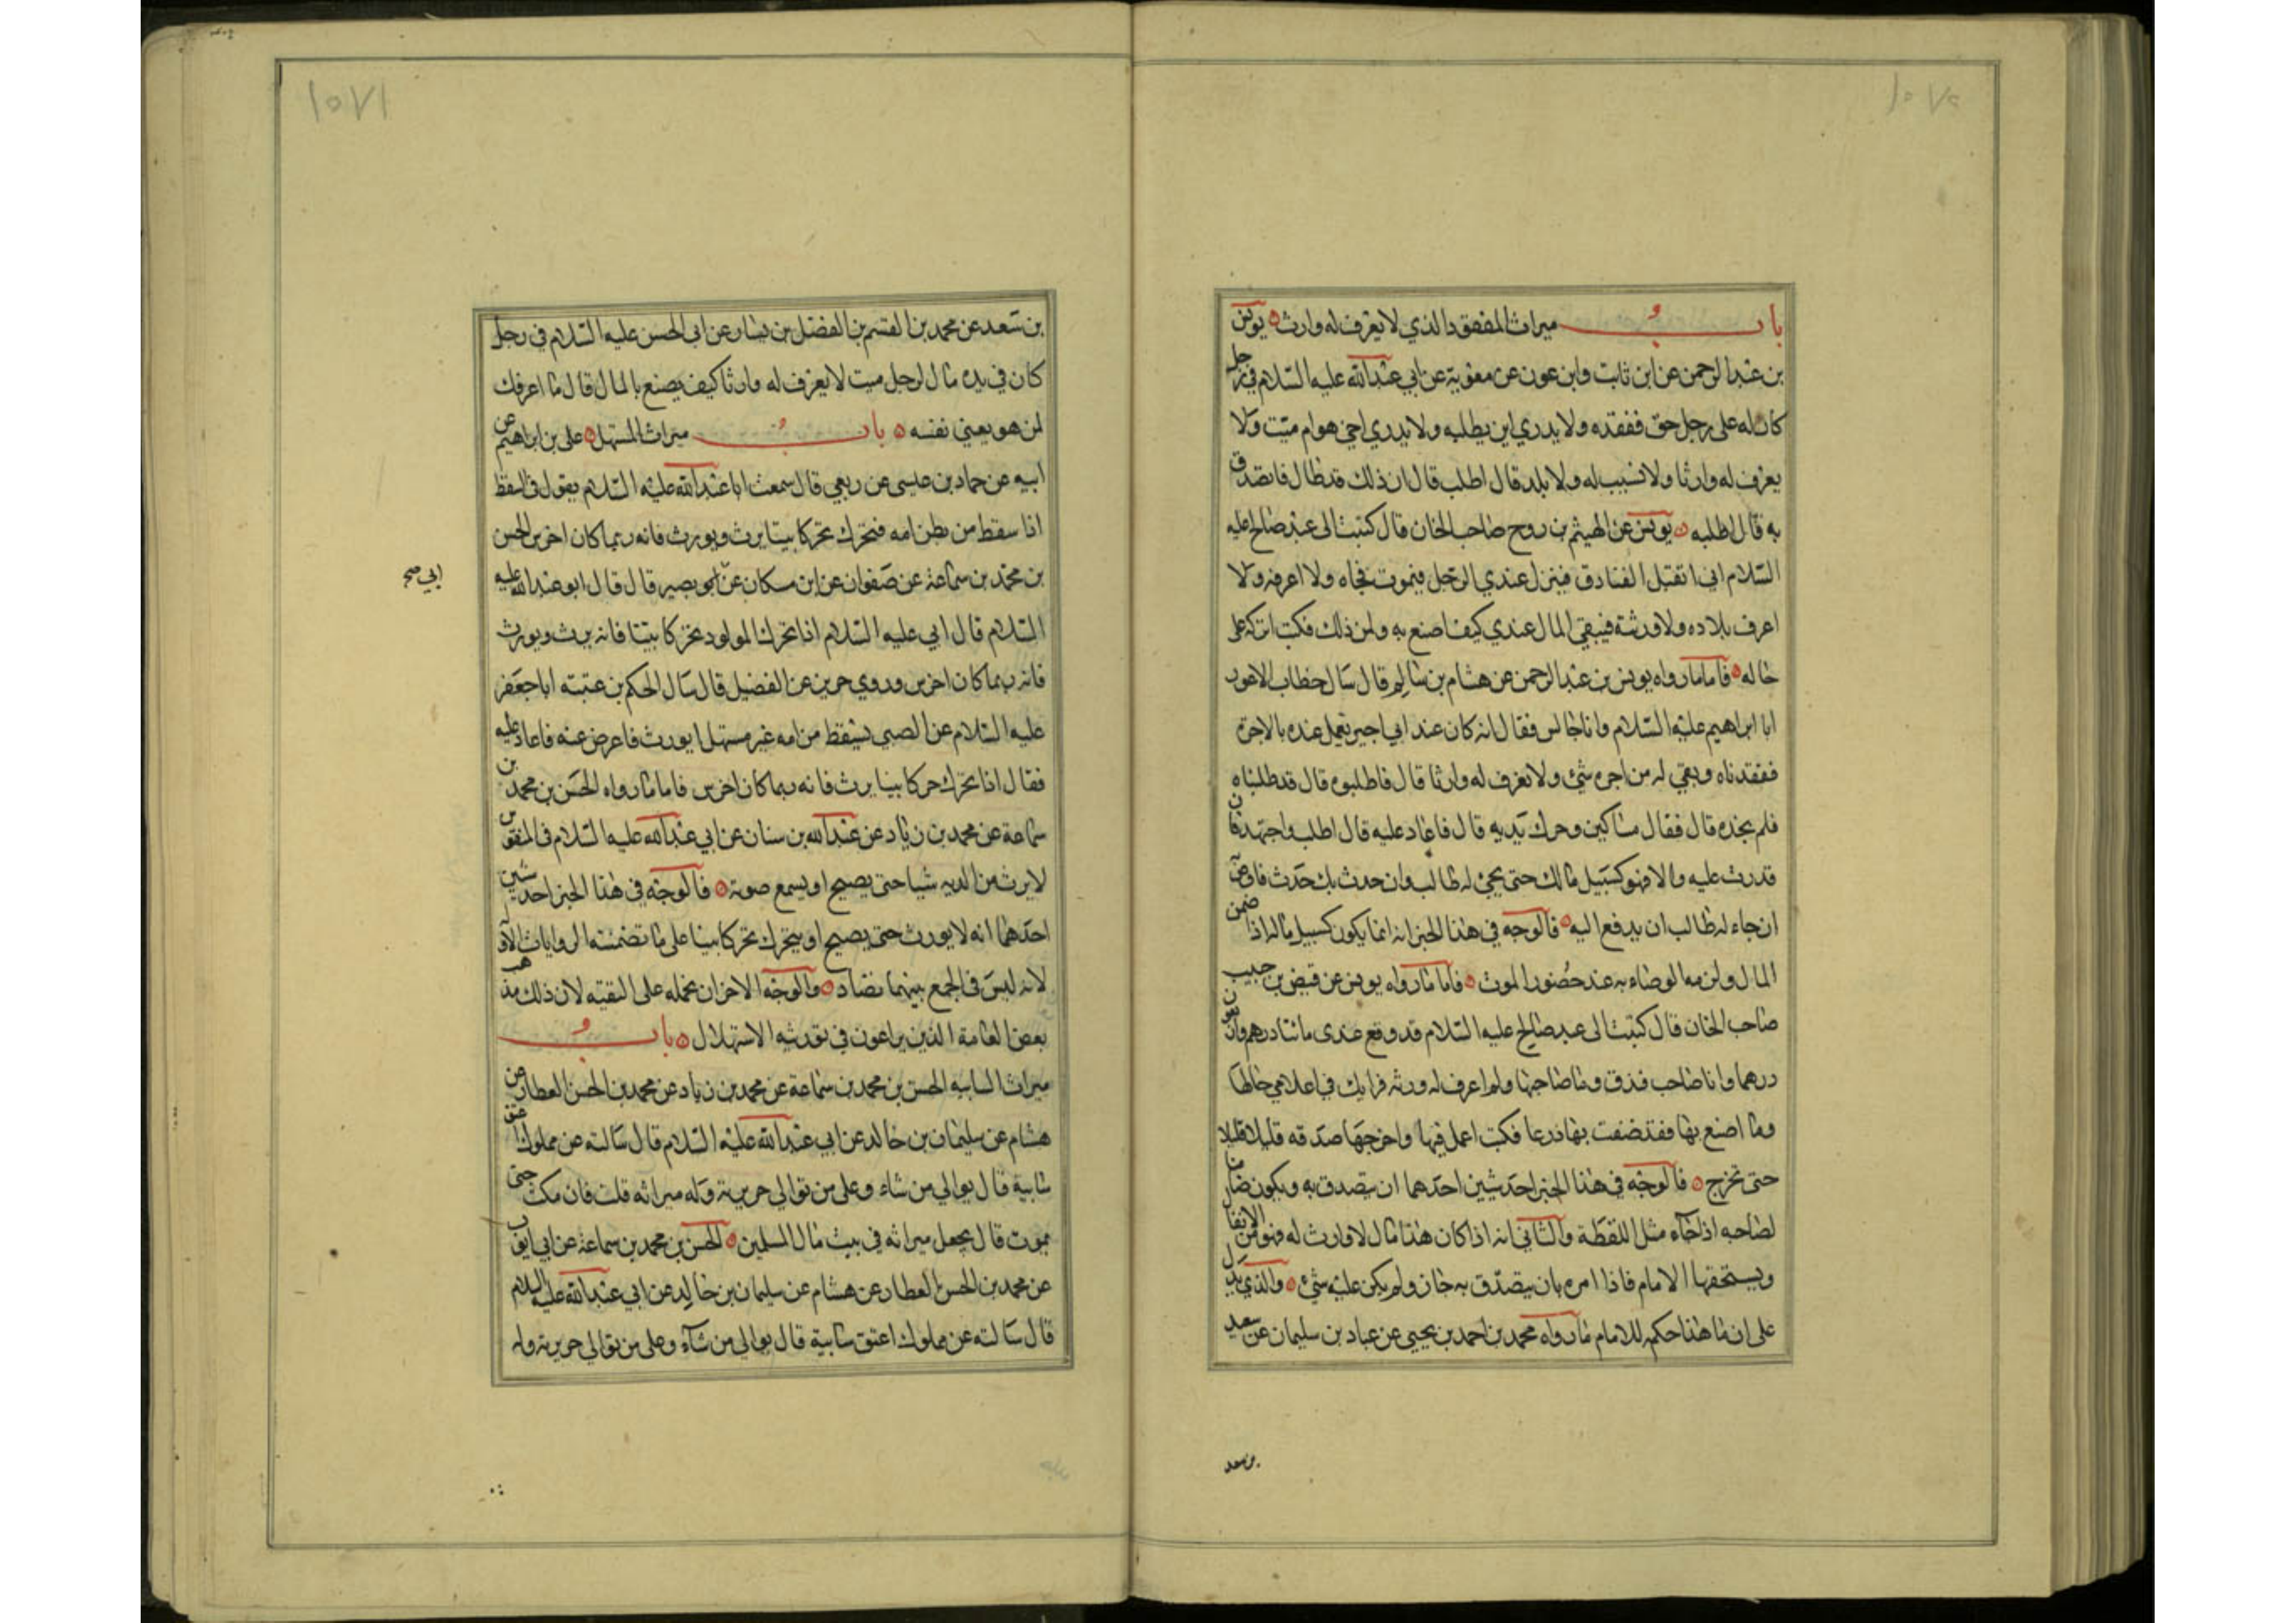 ١٥٧٠
باب ميراث المفقود الذي لا يعرف له وارث يونس
بن عبد الرحمن عن ابن ثابت وابن عون عن معوية عن ابي عبد الله عليه السلام في رجل
كان له على رجل حق ففقده ولا يدري اين يطلبه ولا يدري احي هو ام ميت ولا
يعرف له وارثا ولا نسيب له ولا بلد قال اطلب قال ان ذلك قد طال فاتصدق
به قال اطلبه يونس عن الهيثم بن روح صاحب الخان قال كتبت الى عبد صالح عليه
السلام اني اتقبل الفنادق فينزل عندي الرجل فيموت فجاه ولا اعرفه ولا
اعرف بلاده ولا ورثته فيبقى المال عندي كيف اصنع به ولمن ذلك فكتب اتركه على
حاله فاما ما رواه يونس بن عبد الرحمن عن هشام بن سالم قال سال خطاب الاعور
ابا ابراهيم عليه السلام وانا جالس فقال انه كان عند ابي اجير يعمل عنده بالاجرة
ففقدناه وبقي له من اجره شئ ولا نعرف له وارثا قال فاطلبوه قال قد طلبناه
فلم نجده قال فقال مساكين وحرك يديه قال فاعاد عليه قال اطلب واجتهد فان
قدرت عليه والا فهو كسبيل مالك حتى يجئ له طالب وان حدث بك حدث فاوص
ان جاء له طالب ان يدفع اليه فالوجه في هذا الخبر انه انما يكون كسبيل ماله اذا ضمن
المال ولزمه الوصاء به عند حضور الموت فاما ما رواه يونس عن فيض بن حبيب
صاحب الخان قال كتبت الى عبد صالح عليه السلام قد وقع عندى مائتا درهم واربعون
درهما وانا صاحب فندق ومات صاحبها ولم اعرف له ورثه فرايك في اعلامي حالها
وما اصنع بها فقد ضفت بها ذرعا فكتب اعمل فيها واخرجها صدقه قليلا قليلا
حتى تخرج فالوجه في هذا الخبر احد شيئين احدهما ان يتصدق به ويكون ضامنا
لصاحبه اذا جاء مثل اللقطة والثاني انه اذا كان هذا مال لا وارث له فهو من الانفال
ويستحقها الامام فاذا امره بان يتصدق به جاز ولم يكن عليه شئ والذي يدل
على ان ما هذا حكمه للامام ما رواه محمد بن احمد بن يحيى عن عباد بن سليمان عن سعيد
بن سعد
١٥٧١
بن سعد عن محمد بن القسم بن الفضل بن يسار عن ابي الحسن عليه السلام في رجل
كان في يده مال لرجل ميت لا يعرف له وارثا كيف يصنع بالمال قال ما اعرفك
لمن هو يعني نفسه باب ميراث المستهل علي بن ابراهيم عن
ابيه عن حماد بن عيسى عن ربعي قال سمعت ابا عبد الله عليه السلام يقول في السقط
اذا سقط من بطن امه فتحرك تحركا بينا يرث ويورث فانه ربما كان اخرس الحسن
بن محمد بن سماعة عن صفوان عن ابن مسكان عن ابو بصير قال قال ابو عبد الله عليه
ابي صح
السلام قال ابي عليه السلام اذا تحرك المولود تحركا بينا فانه يرث ويورث
فانه ربما كان اخرس وروي حريز عن الفضيل قال سال الحكم بن عتبته ابا جعفر
عليه السلام عن الصبي يسقط من امه غير مستهل ايورث فاعرض عنه فاعاد عليه
فقال اذا تحرك حركا بينا يرث فانه ربما كان اخرس فاما ما رواه الحسن بن محمد بن
سماعة عن محمد بن زياد عن عبد الله بن سنان عن ابي عبد الله عليه السلام في المنفوس
لا يرث من الديه شيا حتى يصيح او يسمع صوته فالوجه في هذا الخبر احد شيئين
احدهما انه لا يورث حتى يصيح او يتحرك تحركا بينا على ما تضمنته الروايات الاولة
لانه ليس في الجمع بينهما تضاد والوجه الاخر ان نحمله على التقيته لان ذلك مذهب
بعض العامة الذين يراعون في توريثه الاستهلال باب
ميراث السايبه الحسن بن محمد بن سماعة عن محمد بن زياد عن محمد بن الحسن العطار عن
هشام عن سليمان بن خالد عن ابي عبد الله عليه السلام قال سالته عن مملوك اعتق
سايبة قال يوالي من شاء وعلى من توالى جريرته وله ميراثه قلت فان مكث حتى
يموت قال يجعل ميراثه في بيت مال المسلمين الحسن بن محمد بن سماعة عن ابي ايوب
عن محمد بن الحسن العطار عن هشام عن سليمان بن خالد عن ابي عبد الله عليه السلام
قال سالته عن مملوك اعتق سايبة قال يوالي من شاء وعلى من توالى جريرته وله